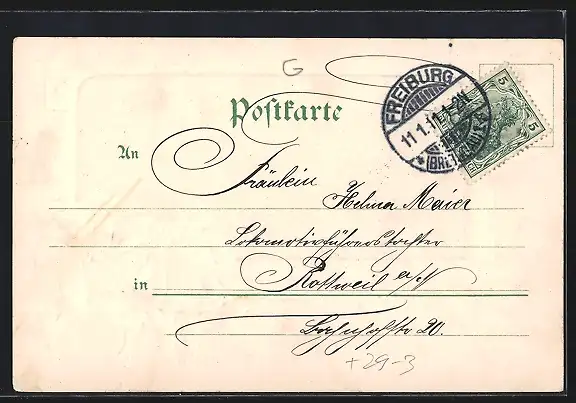 G
Postkarte
FREIBURG
11.1.11.1-2N
*(BREISGAU)1*
5
5
An
Fräulein
Helma Maier
Lokomotivführerstochter
in
Rottweil a/N
Bahnhofstr 20.
+29-3